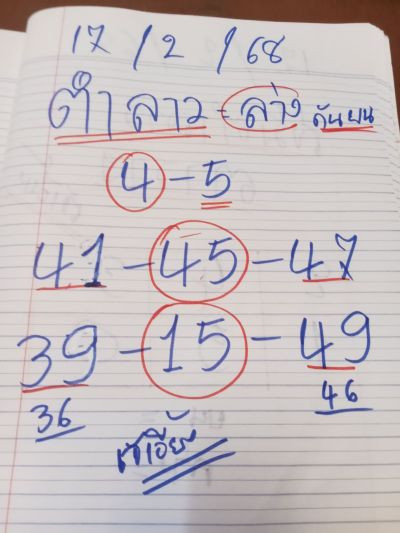 17 / 2 / 68
ตำลาว - ล่าง ดันบน
4 - 5
41 - 45 - 47
39 - 15 - 49
36 46